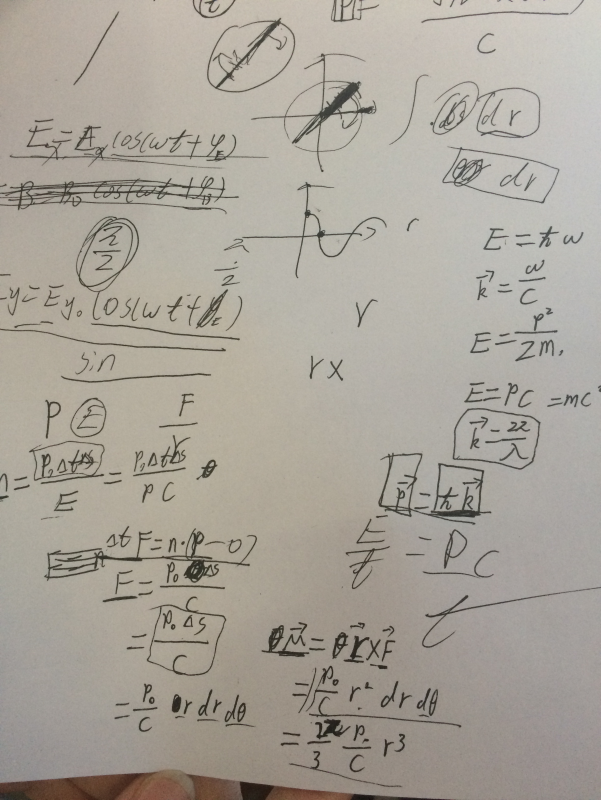 C
E_x = E_x cos(ωt + φ_E)
∫ ds dr
dr
B = B_0 cos(ωt + φ_B)
π/2
E = ħω
k⃗ = ω/C
E = p²/2m
E_y = E_y0 cos(ωt + φ_E)
π/2
r
sin
rx
E = PC = mc²
k⃗ = 2π/λ
P E F
n = P_0 Δt Δs / E = P_0 Δt Δs / PC
p⃗ = ħk⃗
E/t = PC
Δt F = n·(P - 0)
F = P_0 Δs / C
t
= P_0 Δs / C
M⃗ = r⃗ × F⃗
= ∫ P_0/C r² dr dθ
= P_0/C r dr dθ
= 2π/3 P_0/C r³